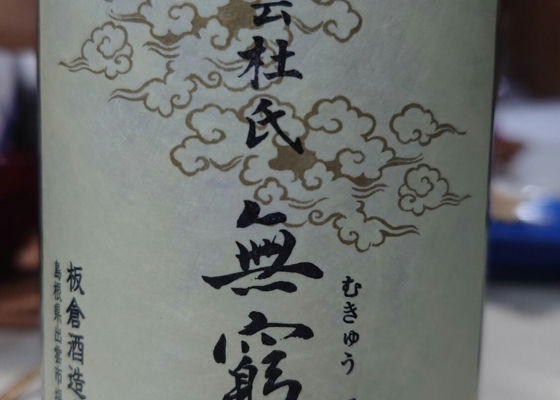 雲杜氏
無窮
むきゅう
板倉酒造
島根県出雲市